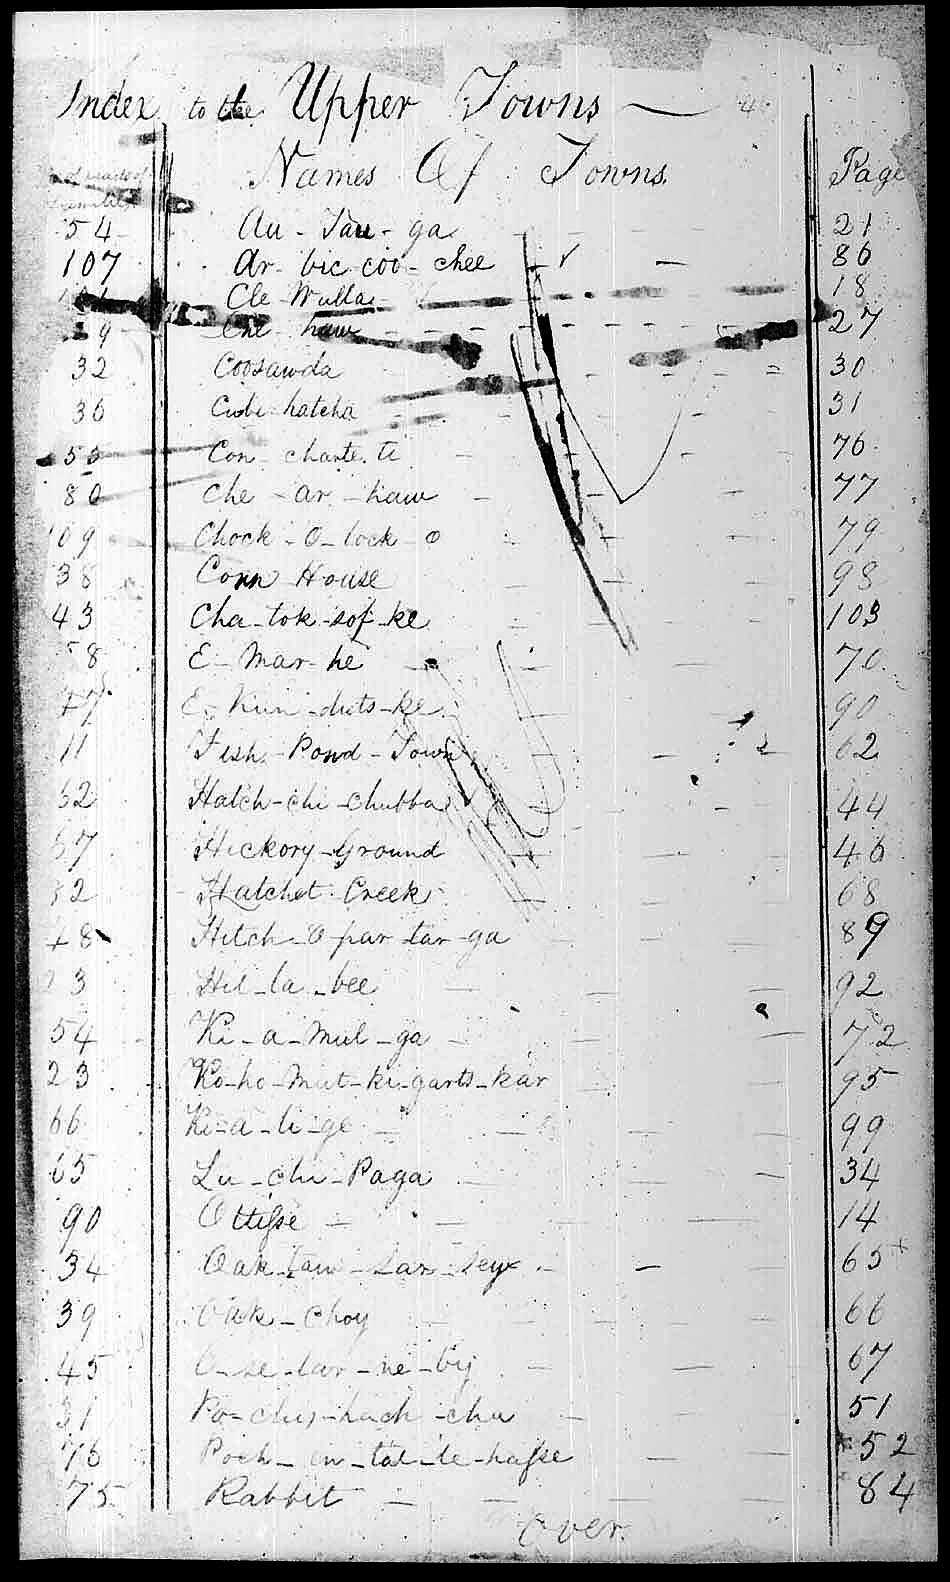 Index to the Upper Towns — 4
Names Of Towns. Page
54 Au-Tau-ga 21
107 Ar-bic-coo-chee 86
Cle-Walla 18
Che-haw 27
32 Coosawda 30
36 Cube hatcha 31
55 Con-charte-te 76
80 Che-ar-haw 77
109 Chock-O-lock-o 79
38 Corn House 98
43 Cha-tok-sof-ke 103
58 E-Mar-he 70
E-Kun-duts-ke 90
11 Fish-Pond-Town 62
62 Hatch-chi-chubba 44
Hickory-Ground 46
Hatchet Creek 68
48 Hitch-O-par-tar-ga 89
Hil-la-bee 92
54 Ki-a-Mul-ga 72
23 Ko-ho-Mut-ki-garts-kar 95
66 Ki-a-li-ge 99
65 Lu-chi-Paga 34
90 Ottisse 14
34 Oak-taw-sar-sey 65
39 Oak-Choy 66
45 O-se-lar-ne-by 67
31 Po-chus-hach-cha 51
76 Poch-en-tal-le-hasse 52
75 Rabbit 84
Over.